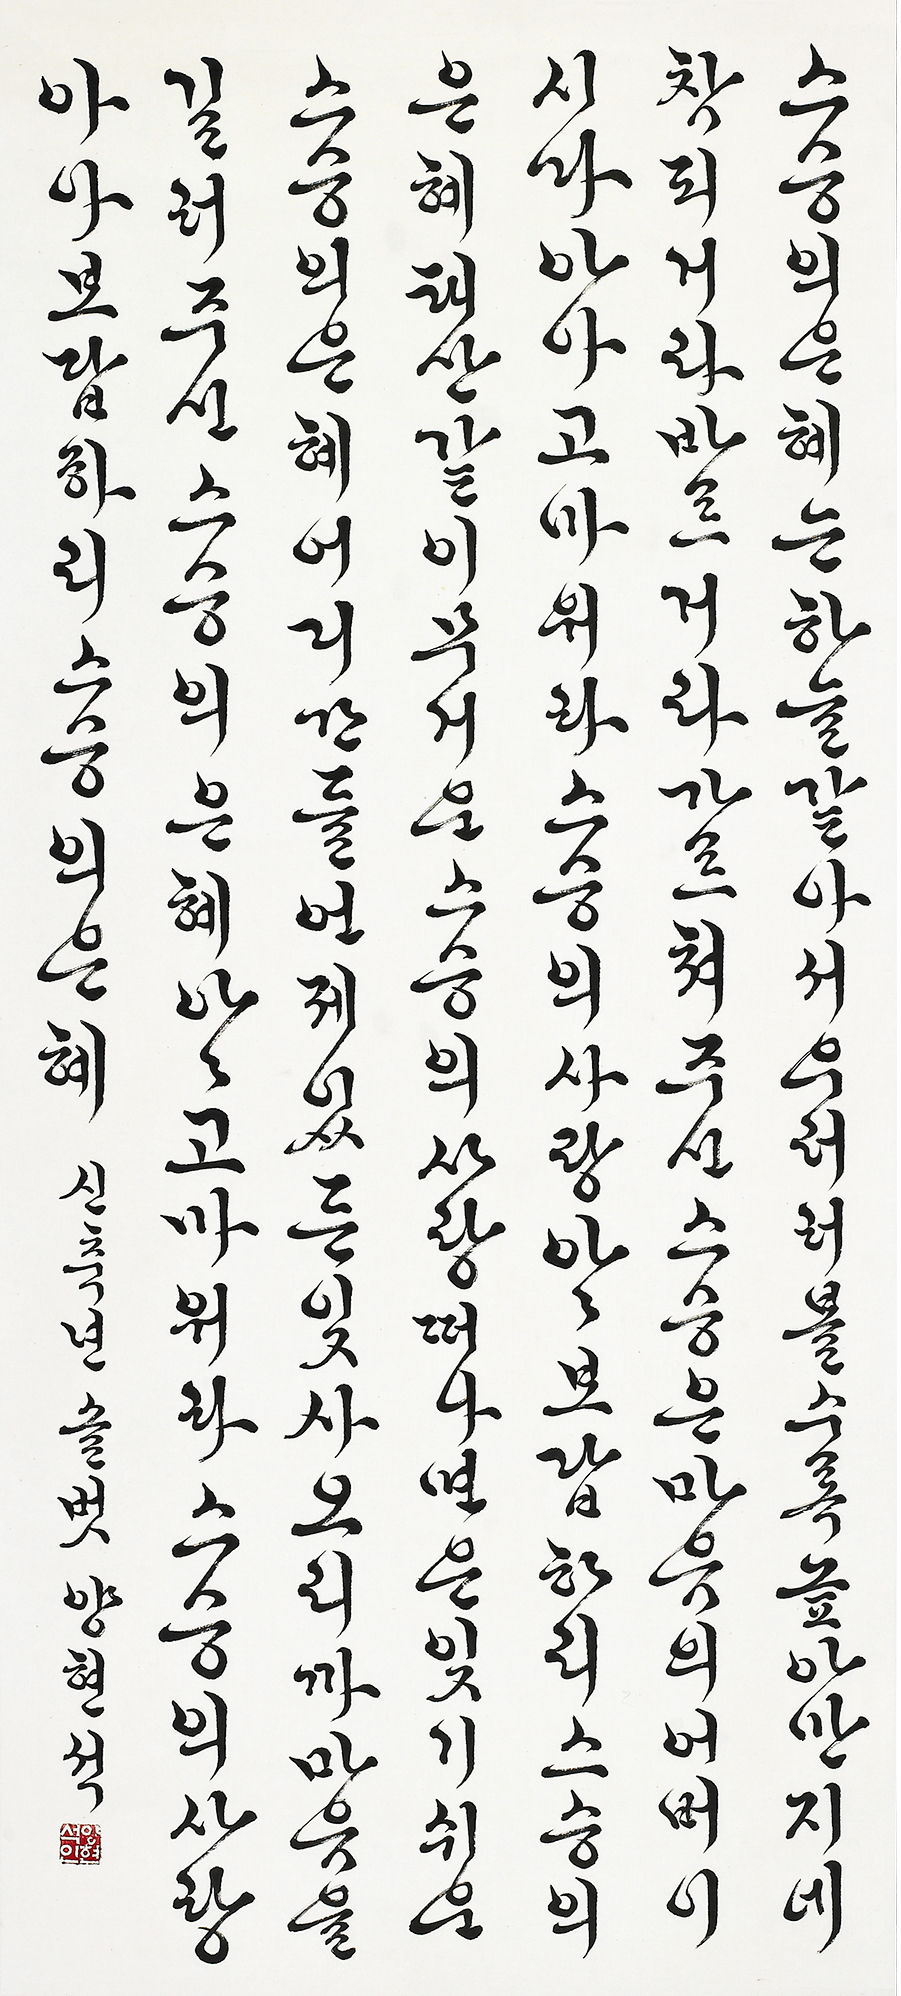 스승의은혜는하늘같아서우러러볼수록높아만지네
참되거라바르거라가르쳐주신스승은마음의어버이
시다아아고마워라스승의사랑아〻보답하리스승의
은혜태산같이무거운스승의사랑떠나면은잊기쉬운
스승의은혜어디간들언제있든잊사오리까마음을
길러주신스승의은혜아〻고마워라스승의사랑
아아보답하리스승의은혜 신축년 솔벗 양현석
양현석인